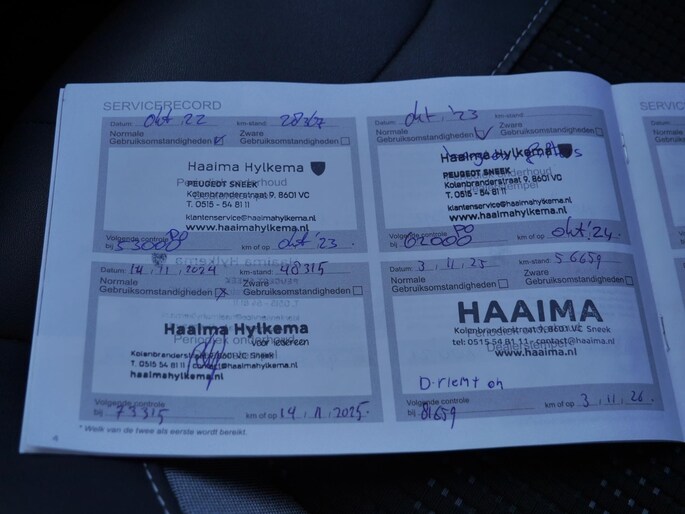 SERVICERECORD
Datum: okt. '22 km-stand: 28367
Normale Gebruiksomstandigheden Zware Gebruiksomstandigheden
Haaima Hylkema
PEUGEOT SNEEK
Kolenbranderstraat 9, 8601 VC
T. 0515 - 54 81 11
klantenservice@haaimahylkema.nl
www.haaimahylkema.nl
Volgende controle
bij km of op okt '23
Datum: okt. '23 km-stand:
Normale Gebruiksomstandigheden Zware Gebruiksomstandigheden
Haaima Hylkema
PEUGEOT SNEEK
Kolenbranderstraat 9, 8601 VC
T. 0515 - 54 81 11
klantenservice@haaimahylkema.nl
www.haaimahylkema.nl
Volgende controle
bij 62000 km of op okt '24
Datum: 14.11.2024 km-stand: 48315
Normale Gebruiksomstandigheden Zware Gebruiksomstandigheden
Haaima Hylkema
voor iedereen
Periodiek onderhoud
Kolenbranderstraat 9, 8601 VC Sneek
T. 0515 54 81 11 - contact@haaima.nl
haaimahylkema.nl
Volgende controle
bij 73315 km of op 14.11.2025.
Datum: 3.11.25 km-stand: 56659
Normale Gebruiksomstandigheden Zware Gebruiksomstandigheden
HAAIMA
Kolenbranderstraat 9, 8601 VC Sneek
tel: 0515 54 81 11 - contact@haaima.nl
www.haaima.nl
D.riemt on
Volgende controle
bij 81659 km of op 3.11.26.
4 * Welk van de twee als eerste wordt bereikt.